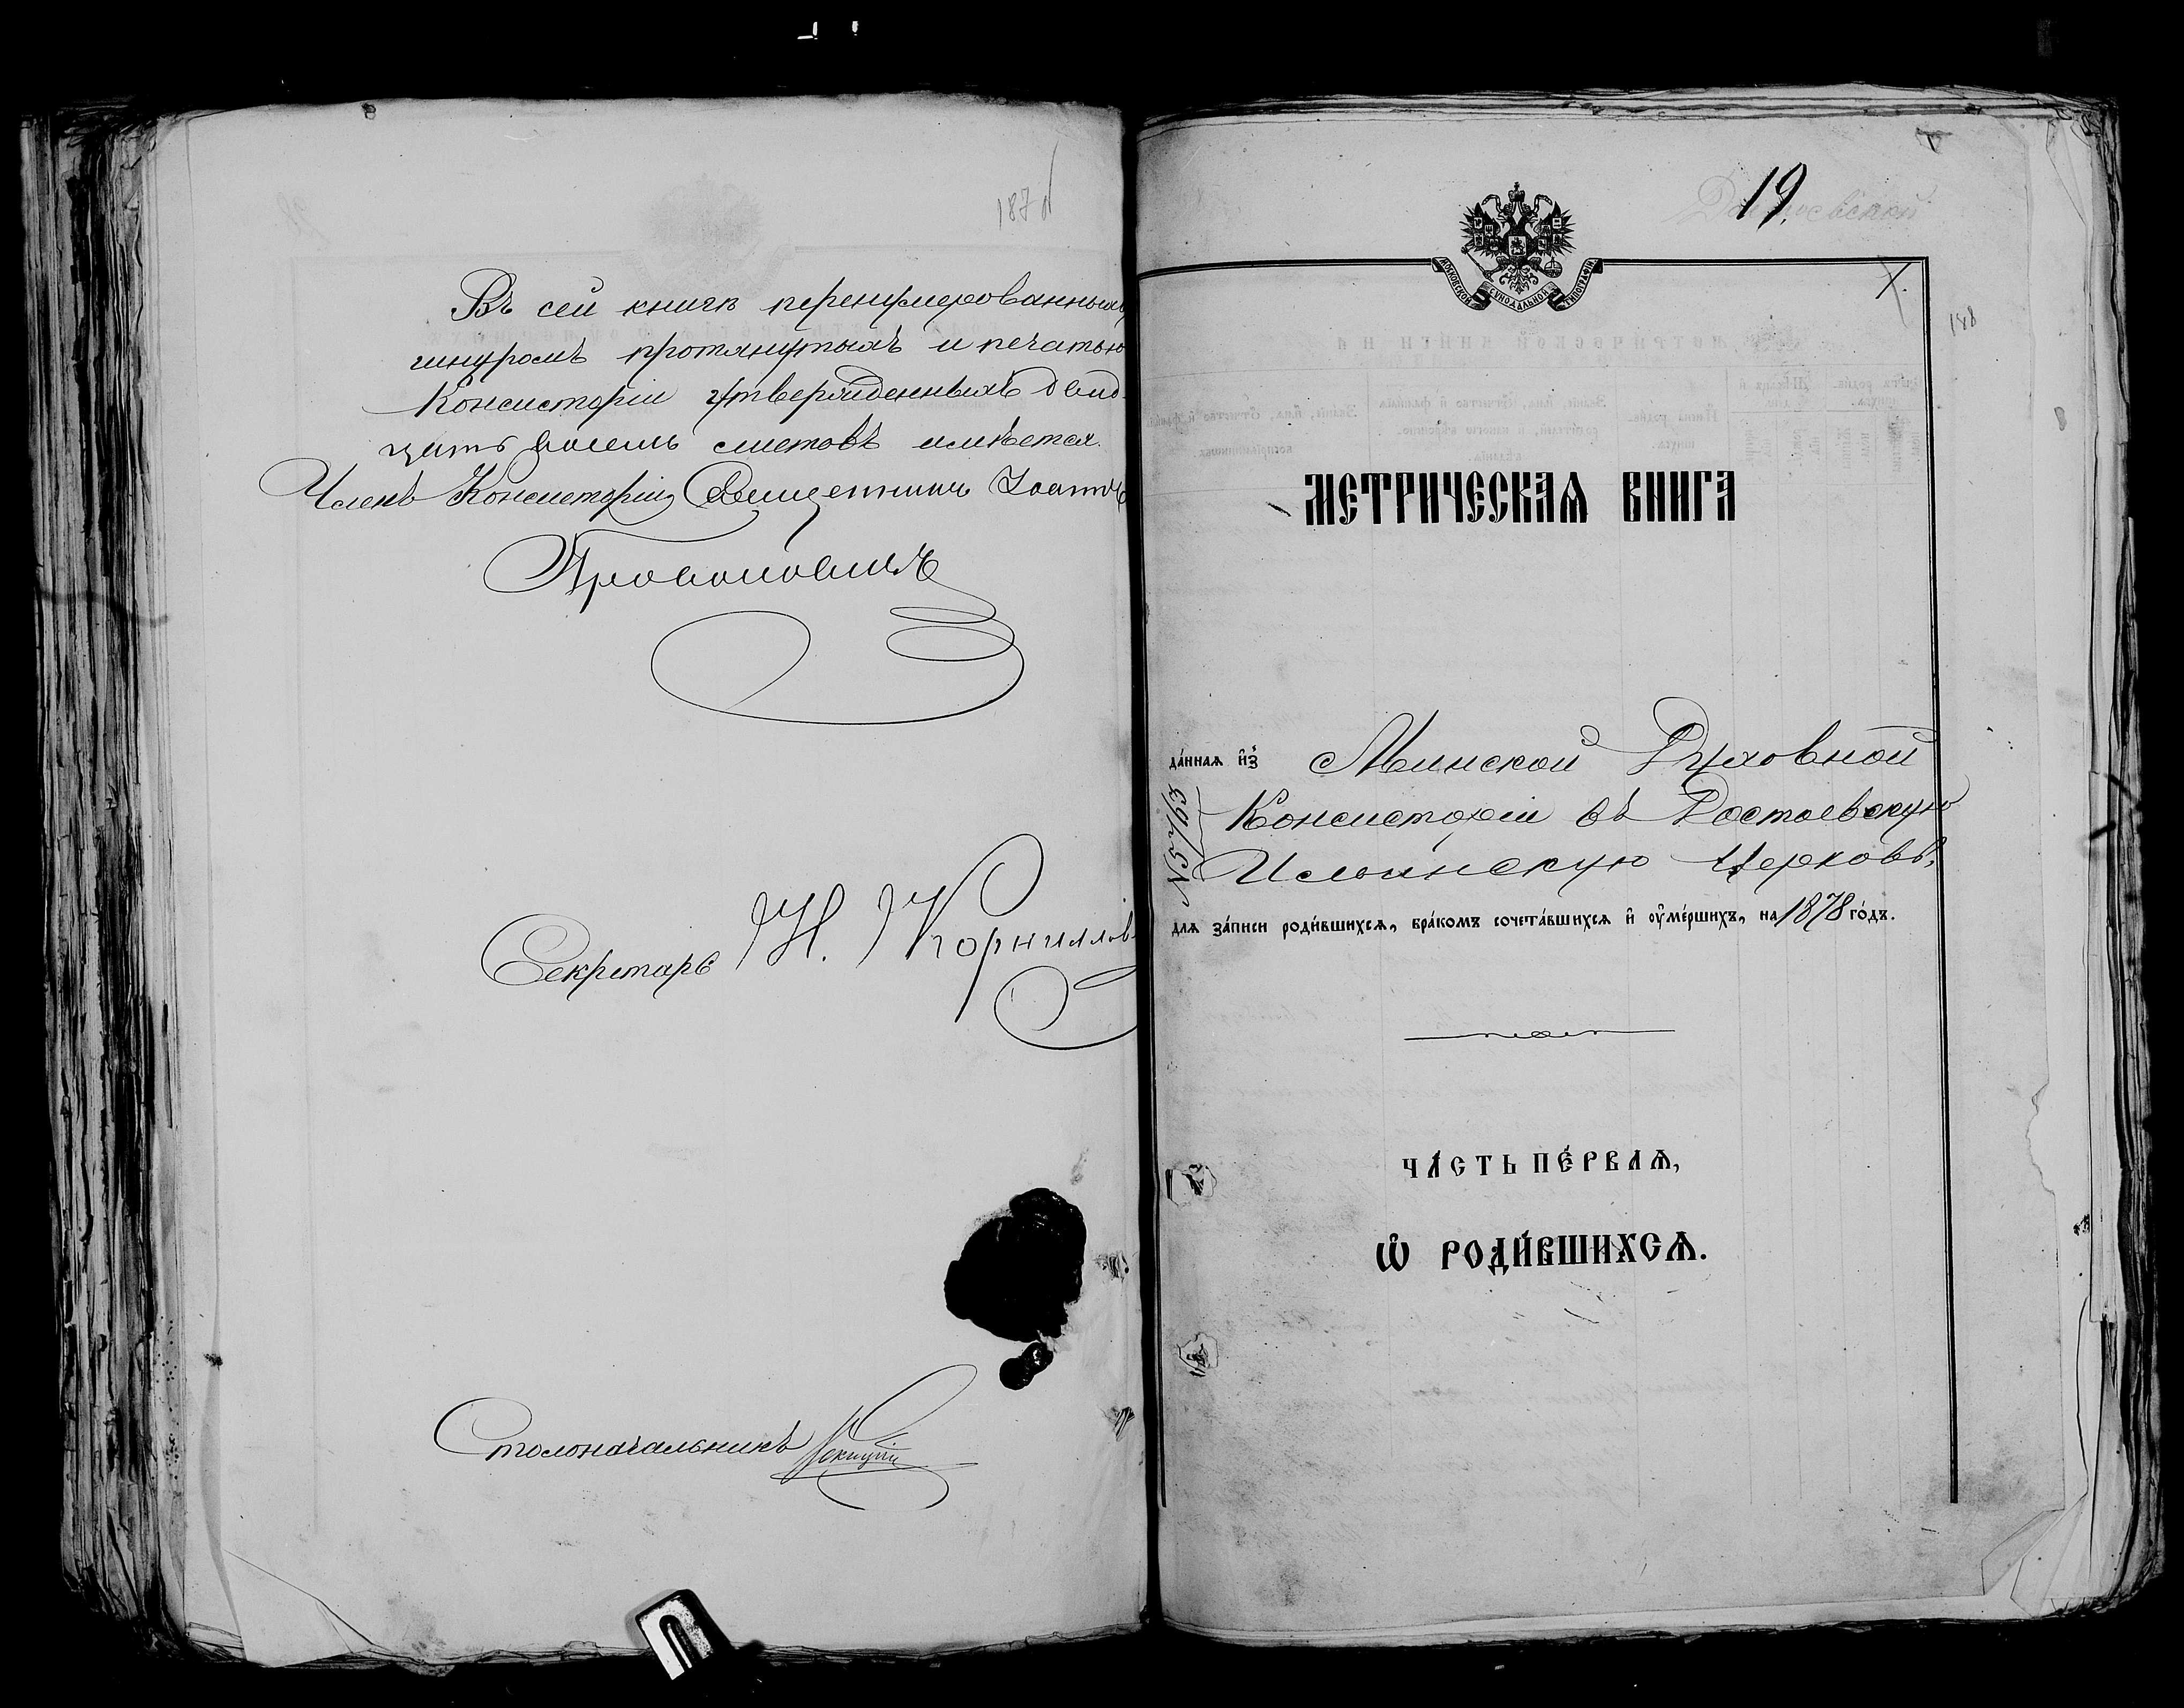 187
Въ сей книгѣ перенумерованныхъ,
шнуромъ протянутыхъ и печатью
Консисторіи утвержденныхъ двад-
цать восемь листовъ имѣется.
Членъ Консисторіи Священникъ Іоаннъ
Секретарь Н. Корнилов
Столоначальникъ
19.
МОСКОВСКОЙ СѴНОДАЛЬНОЙ ТИПОГРАФІИ
148
МЕТРИЧЕСКАѦ КНИГА
да́ннаѧ и҆з̾ Минской Духовной
Консисторіи въ Достоевскую
Ильинскую Церковь,
№5793
длѧ за́писи роди́вшихсѧ, бра́комъ сочета́вшихсѧ и҆ ᲂу҆ме́ршихъ, на 1878 го́дъ.
ЧА́СТЬ ПЕ́РВАѦ,
Ѡ҆ РОДИ́ВШИХСѦ.